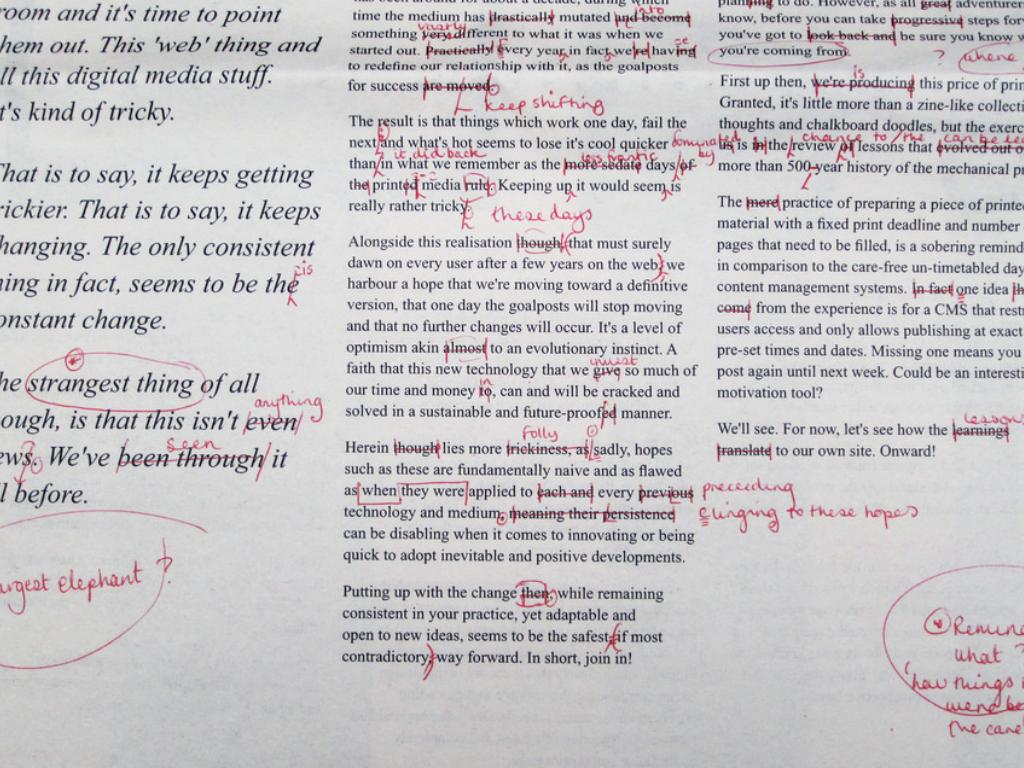 room and it's time to point
them out. This 'web' thing and
all this digital media stuff.
It's kind of tricky.
That is to say, it keeps getting
trickier. That is to say, it keeps
changing. The only consistent
thing in fact, seems to be the
is
constant change.
The strangest thing of all
though, is that this isn't even
anything
news. We've been through it
seen
all before.
largest elephant ?
time the medium has drastically mutated and become
into
something very different to what it was when we
vastly
started out. Practically every year, in fact, we're having
to redefine our relationship with it, as the goalposts
for success are moved.
keep shifting
The result is that things which work one day, fail the
next and what's hot seems to lose it's cool quicker
dominated by
than in what we remember as the more sedate days of
it did back
less frantic
the printed media rule. Keeping up it would seem is
really rather tricky.
these days
Alongside this realisation though, that must surely
dawn on every user after a few years on the web, we
harbour a hope that we're moving toward a definitive
version, that one day the goalposts will stop moving
and that no further changes will occur. It's a level of
optimism akin almost to an evolutionary instinct. A
faith that this new technology that we give so much of
invest
our time and money to, can and will be cracked and
in
solved in a sustainable and future-proofed manner.
Herein though lies more trickiness, as sadly, hopes
folly
such as these are fundamentally naive and as flawed
as when they were applied to each and every previous
preceeding
technology and medium, meaning their persistence
clinging to these hopes
can be disabling when it comes to innovating or being
quick to adopt inevitable and positive developments.
Putting up with the change then, while remaining
consistent in your practice, yet adaptable and
open to new ideas, seems to be the safest, if most
contradictory, way forward. In short, join in!
planning to do. However, as all great adventurers
know, before you can take progressive steps
you've got to look back and be sure you know
you're coming from.
? where
First up then, we're producing this price of
is
Granted, it's little more than a zine-like
thoughts and chalkboard doodles, but the
chance to the can be
us is in the review of lessons that evolved out
more than 500-year history of the mechanical
The mere practice of preparing a piece of
material with a fixed print deadline and number
pages that need to be filled, is a sobering
in comparison to the care-free un-timetabled
content management systems. In fact one idea
come from the experience is for a CMS that
users access and only allows publishing at exact
pre-set times and dates. Missing one means you
post again until next week. Could be an
motivation tool?
We'll see. For now, let's see how the learnings
translate to our own site. Onward!
what ?
'how things
were
the